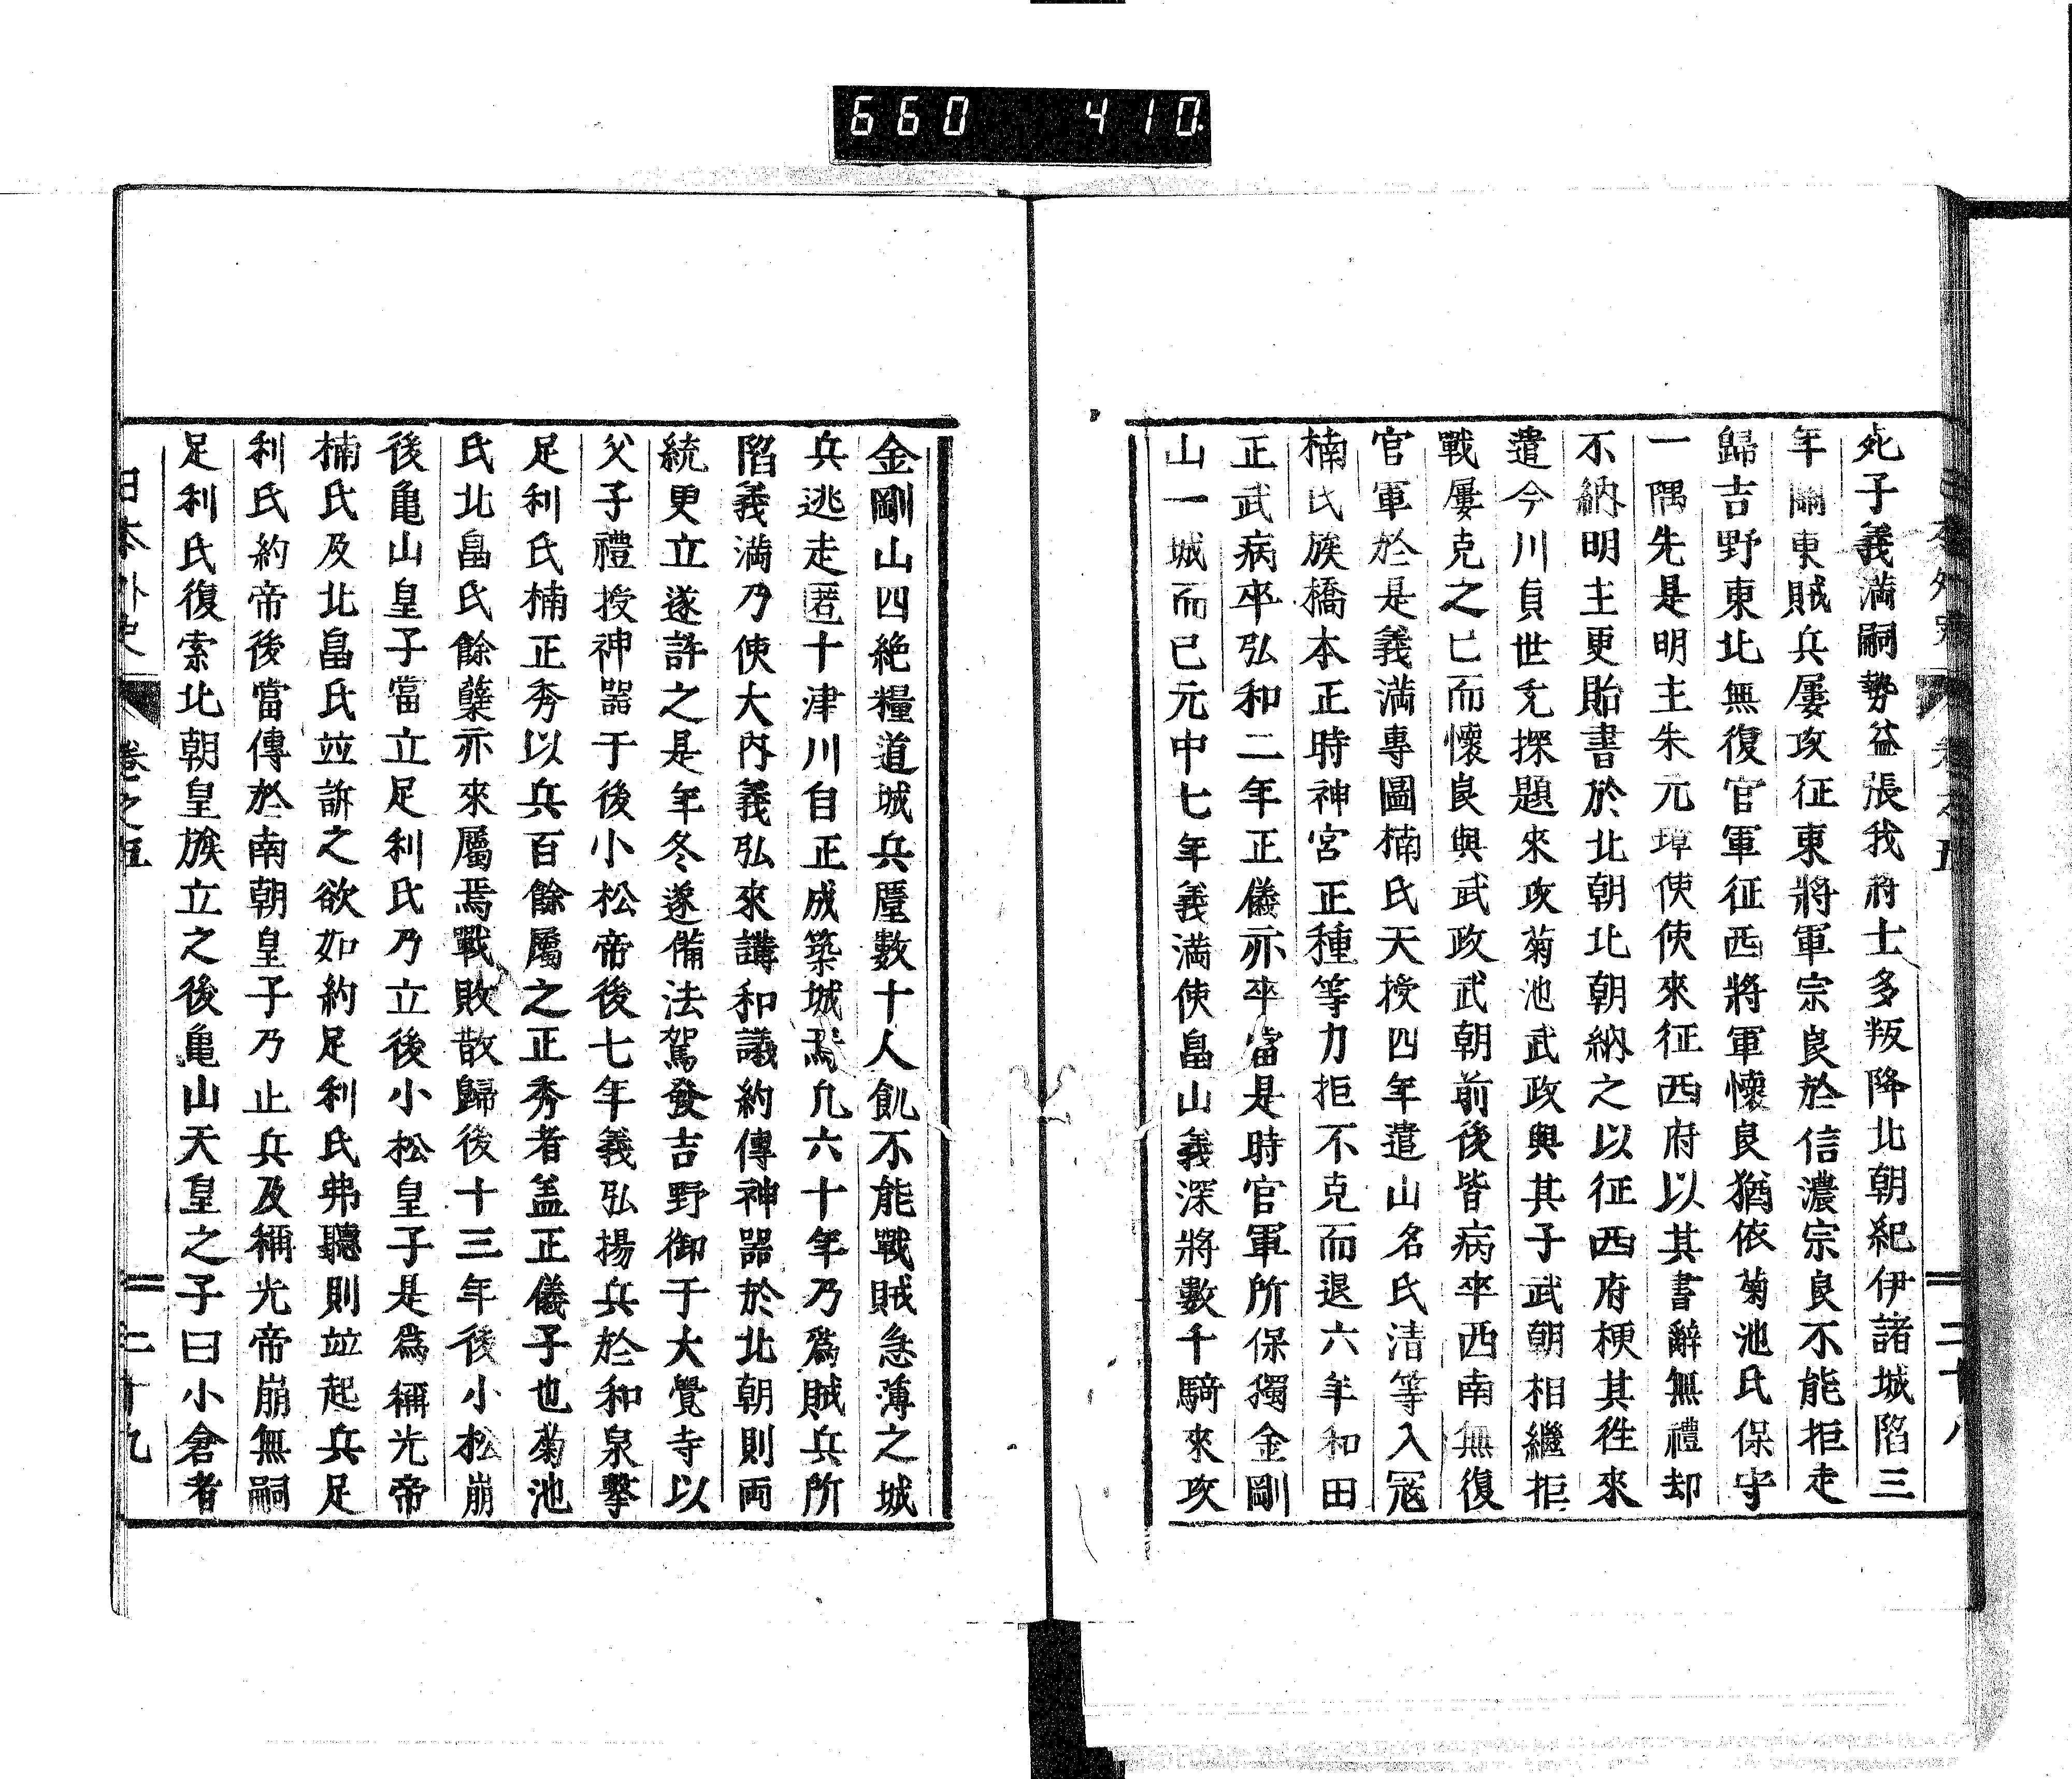 660 410
日本外史 卷之五 二十八
死子義満嗣勢益張我将士多叛降北朝紀伊諸城陷三
年關東賊兵屡攻征東將軍宗良於信濃宗良不能拒走
歸吉野東北無復官軍征西將軍懷良猶依菊池氏保守
一隅先是明主朱元璋使使來征西府以其書辭無禮却
不納明主更貽書於北朝北朝納之以征西府梗其徃來
遣今川貞世充探題來攻菊池武政與其子武朝相繼拒
戰屡克之已而懷良與武政武朝前後皆病卒西南無復
官軍於是義満專圖楠氏天授四年遣山名氏清等入冦
楠氏族橋本正時神宮正種等力拒不克而退六年和田
正武病卒弘和二年正儀亦卒當是時官軍所保獨金剛
山一城而已元中七年義満使畠山義深將數千騎來攻
金剛山四絶糧道城兵廑數十人飢不能戰賊急薄之城
兵逃走匿十津川自正成築城焉凢六十年乃爲賊兵所
陷義満乃使大内義弘來講和議約傳神器於北朝則両
統更立遂許之是年冬遂備法駕發吉野御于大覺寺以
父子禮授神器于後小松帝後七年義弘揚兵於和泉擊
足利氏楠正秀以兵百餘屬之正秀者盖正儀子也菊池
氏北畠氏餘孽亦來屬焉戰敗散歸後十三年後小松崩
後亀山皇子當立足利氏乃立後小松皇子是爲稱光帝
楠氏及北畠氏竝訴之欲如約足利氏弗聽則竝起兵足
利氏約帝後當傳於南朝皇子乃止兵及稱光帝崩無嗣
足利氏復索北朝皇族立之後亀山天皇之子曰小倉者
日本外史 卷之五 二十九